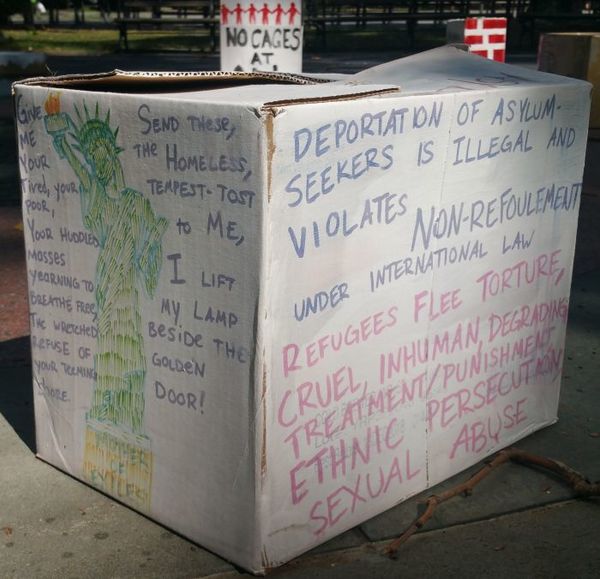 NO CAGES
AT
GIVE
ME
YOUR
Tired, your
poor,
Your Huddled
masses
yearning to
Breathe free,
The wretched
Refuse of
your teeming
shore.
MOTHER
OF
EXILES
Send these,
the Homeless,
Tempest-Tost
to Me,
I Lift
my Lamp
Beside the
Golden
Door!
DEPORTATION OF ASYLUM-
SEEKERS IS ILLEGAL AND
VIOLATES NON-REFOULEMENT
UNDER INTERNATIONAL LAW
REFUGEES FLEE TORTURE,
CRUEL, INHUMAN, DEGRADING
TREATMENT/PUNISHMENT
ETHNIC PERSECUTION,
SEXUAL ABUSE